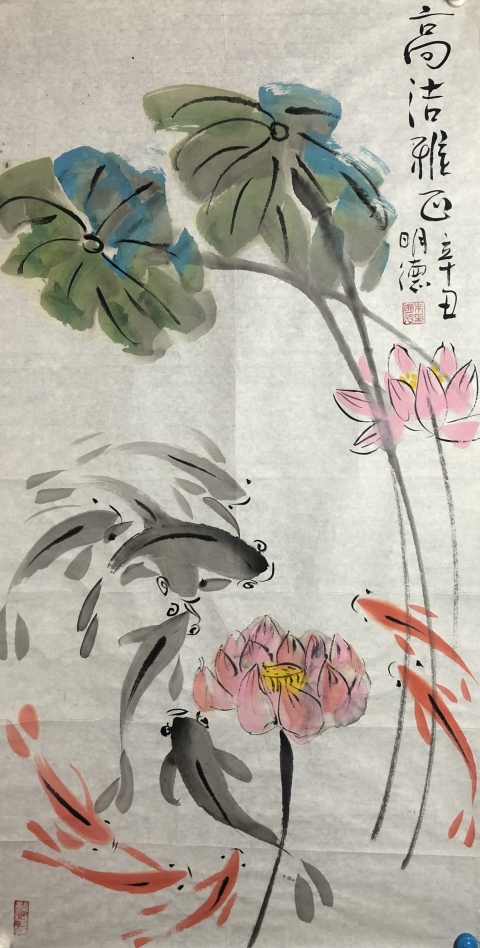 高洁雅正
辛丑
明德